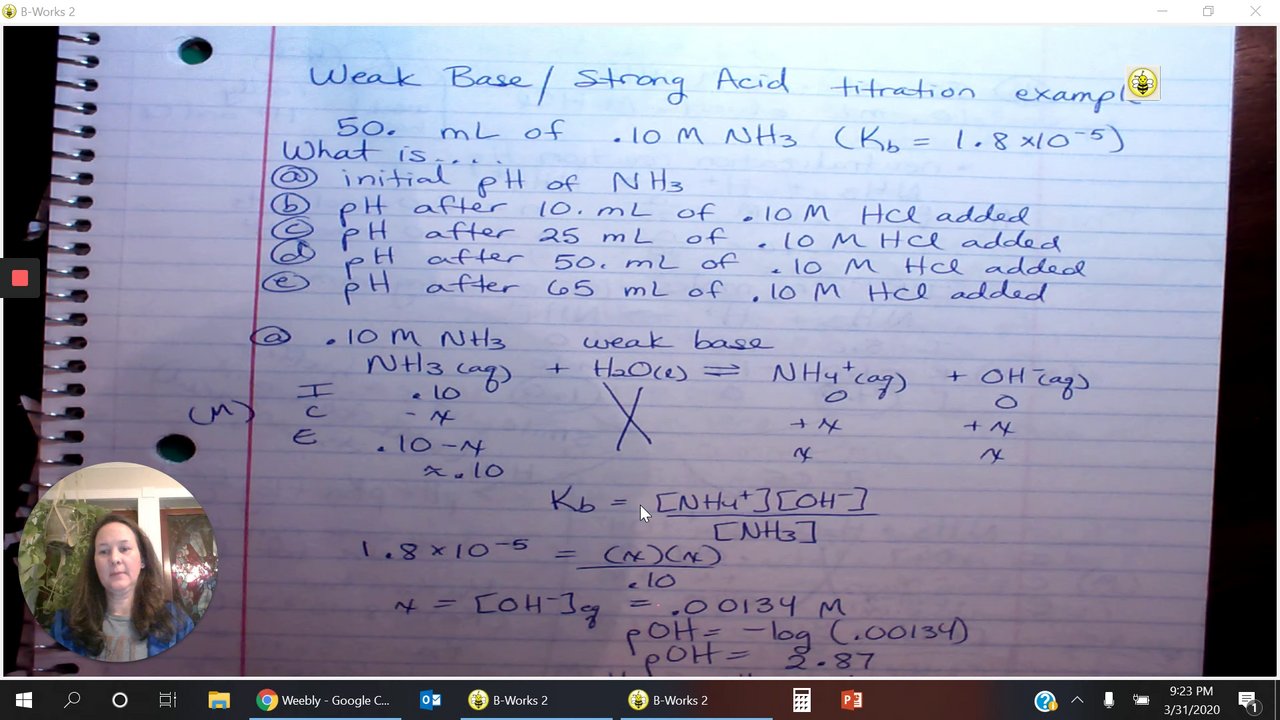 B-Works 2
Weak Base/Strong Acid titration exampl
50. mL of .10 M NH3 (Kb = 1.8 x10⁻⁵)
What is....
(a) initial pH of NH3
(b) pH after 10. mL of .10 M HCl added
(c) pH after 25 mL of .10 M HCl added
(d) pH after 50. mL of .10 M HCl added
(e) pH after 65 mL of .10 M HCl added
(a) .10 M NH3 weak base
NH3 (aq) + H2O(l) ⇌ NH4⁺(aq) + OH⁻(aq)
I .10 0 0
(M) C -x +x +x
E .10 -x x x
≈ .10
Kb = [NH4⁺][OH⁻]
[NH3]
1.8 x 10⁻⁵ = (x)(x)
.10
x = [OH⁻]eq = .00134 M
pOH = -log (.00134)
pOH = 2.87
Weebly - Google C...
B-Works 2
B-Works 2
9:23 PM
3/31/2020
1